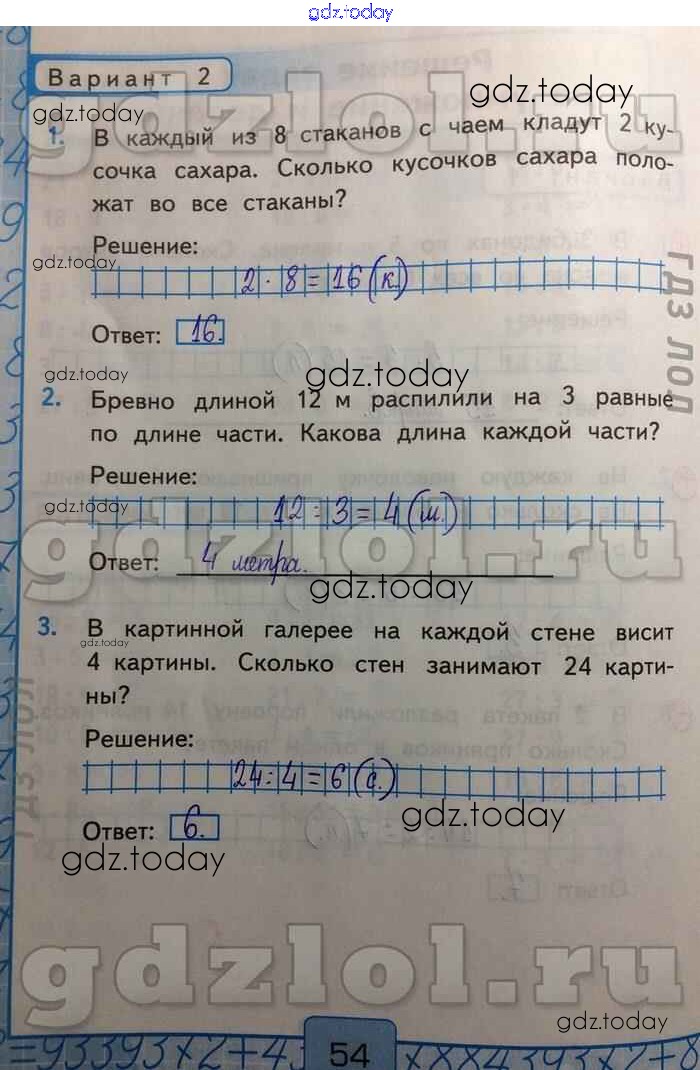 gdz.today
Вариант 2
gdz.today
gdz.today
1. В каждый из 8 стаканов с чаем кладут 2 ку-
сочка сахара. Сколько кусочков сахара поло-
жат во все стаканы?
Решение:
gdz.today
2 · 8 = 16 (к.)
Ответ: 16.
gdz.today
gdz.today
2. Бревно длиной 12 м распилили на 3 равные
по длине части. Какова длина каждой части?
Решение:
gdz.today
12 : 3 = 4 (м.)
gdzlol.ru
Ответ: 4 метра.
gdz.today
3. В картинной галерее на каждой стене висит
gdz.today
4 картины. Сколько стен занимают 24 карти-
ны?
Решение:
24 : 4 = 6 (с.)
Ответ: 6.
gdz.today
gdz.today
gdzlol.ru
gdz.today
54
гдз лол
гдз лол
gdzlol.ru